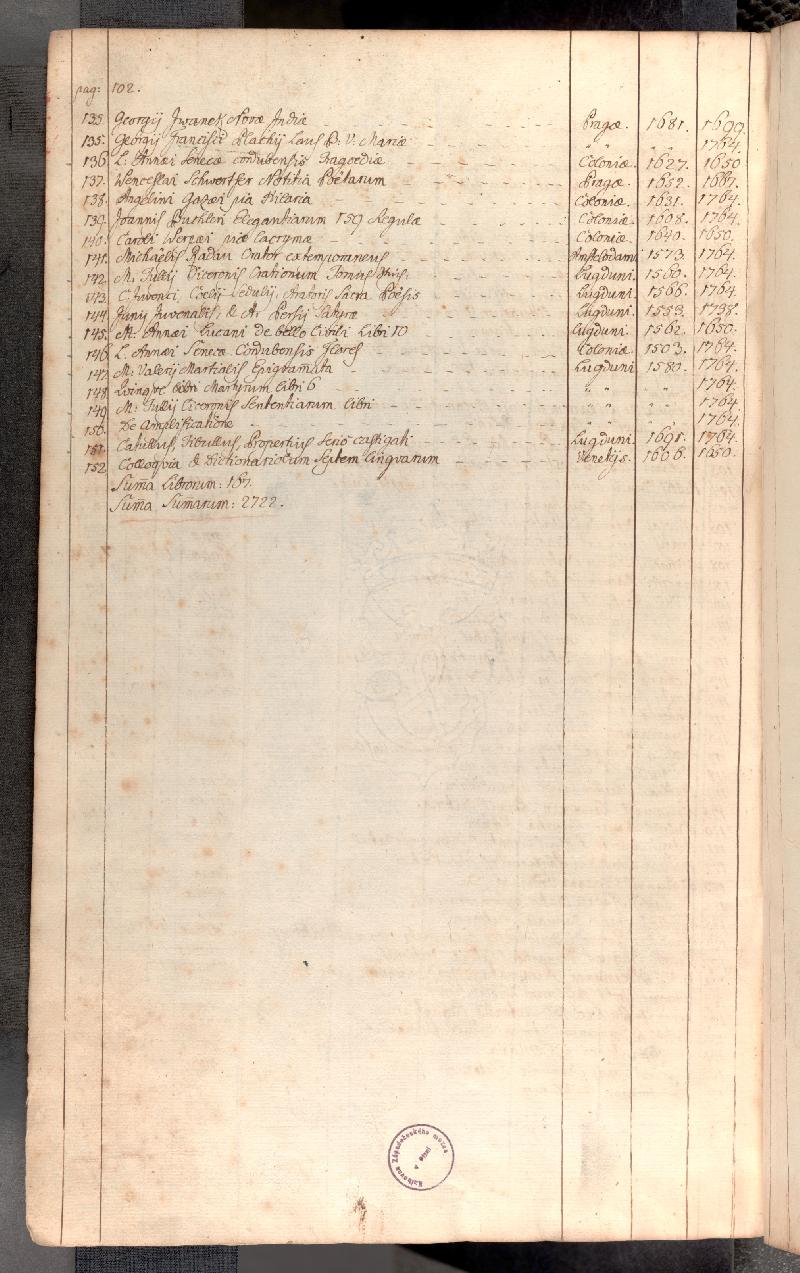 pag: 102.
135 Georgij Iwanek Novæ Indiæ Pragæ. 1681. 1699.
135. Georgij Francisci Plachij Laus B: V: Mariæ " " " 1764.
136. L. Annæi Senecæ Cordubensis Tragoediæ Coloniæ. 1627. 1650
137. Wenceslai Schwertfer Notitia Poëtarum Pragæ. 1652. 1667.
138. Angelini Gazæi pia Hilaria Coloniæ. 1631. 1764.
139. Joannis Buchleri Elegantiarum 159 Regulæ Coloniæ. 1608. 1764.
140. Caroli Werpæi piæ Lacrymæ Coloniæ 1640. 1650.
141. Michaëlis Radau Orator extemporaneus Amstelodam. 1573. 1764.
142. M: Tullij Ciceronis Orationum Tomus Lugduni. 1560. 1764.
143. C: Juvenci, Coelij Sedulij, Aratoris Sacra Poësis Lugduni. 1566. 1764.
144. Junij Juvenalis, & A: Persij Satyræ Lugduni. 1553. 1738.
145. M: Annæi Lucani de bello Civili Libri 10 Lugduni. 1562. 1650.
146. L. Annæi Senecæ Cordubensis Flores Coloniæ 1503. 1764.
147. M: Valerij Martialis Epigramata Lugduni 1580. 1764.
148. Quinque Libri Martyrum Libri 6 " " " 1764.
149. M: Tullij Ciceronis Sententiarum Libri " " " 1764.
150. De Amplificatione " " " 1764.
151. Catullus, Tibullus, Propertius serio castigati Lugduni. 1691. 1764.
152 Colloqvia & Dictionariolum Septem Lingvarum Venetijs. 1606. 1650.
Suma Librorum: 157.
Suma Sumarum: 2722.
Knihovna Západočeského musea
v Plzni